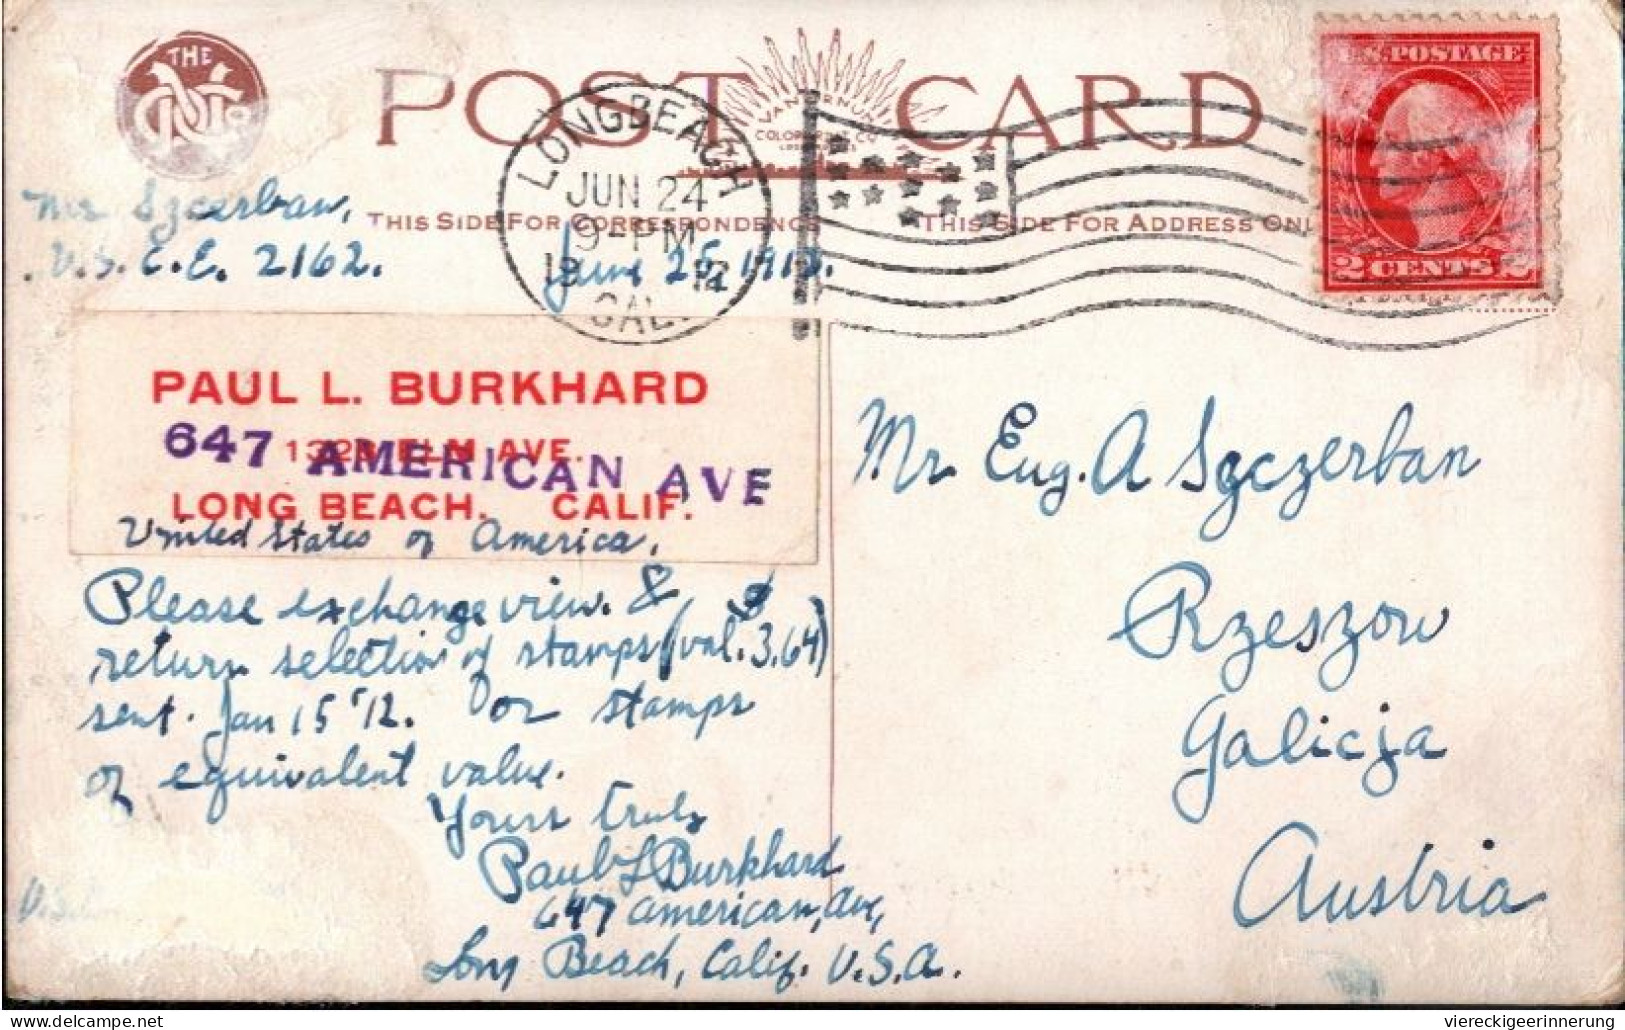 THE
POST CARD
VAN ORNUM
COLORPRINT CO.
THIS SIDE FOR CORRESPONDENCE
THIS SIDE FOR ADDRESS ONLY
LONG BEACH
JUN 24
9-PM
1912
CAL.
U.S. POSTAGE
2 CENTS 2
Mr Szczerban,
U.S.C.E. 2162.
June 25, 1912.
PAUL L. BURKHARD
ELM AVE.
647 AMERICAN AVE
LONG BEACH. CALIF.
United States of America.
Please exchange view. &
return selection of stamps (val. 3.64)
sent. Jan 15 '12. or stamps
of equivalent value.
Yours truly
Paul L Burkhard
647 American, Ave,
Long Beach, Calif. U.S.A.
Mr Eug. A Szczerban
Rzeszow
Galicja
Austria
www.delcampe.net
viereckigeerinnerung